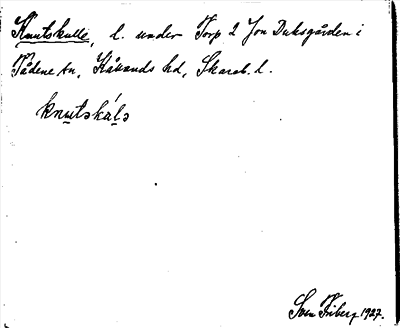 Knutskulle, l. under Torp 2 Jon Duksgården i
Tådene sn, Kållands hd, Skarab. l.
knutskùls
Sven Friberg 1927.